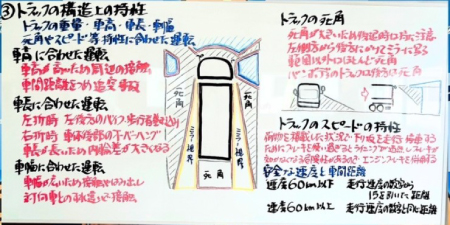 ③トラックの構造上の特性
トラックの重量・車高・車長・車幅
死角やスピード等 特性に合わせた運転
車高に合わせた運転
車高が高いため周辺の接触
車間距離をつめ 追突
車長に合わせた運転
左折時 左後方のバイク・歩行者巻き込み
右折時 車体後部のオーバーハング
車長が長いため内輪差が大きくなる
車幅に合わせた運転
車幅が広いため接触やはみ出し
対向車とのすれ違いで接触
死角
死角
死角
ミラー視界
ミラー視界
死角
トラックの死角
死角が大きいため
左側方から後方にかけミラーに写る
範囲以外はほとんど死角
トラックのスピードの特性
荷物を積載した状況で 下り坂を走行
エンジンブレーキを併用する
安全な速度と車間距離
速度60km以下 走行速度の数字から
15を引いた距離
速度60km以上 走行速度の数字と同じ距離